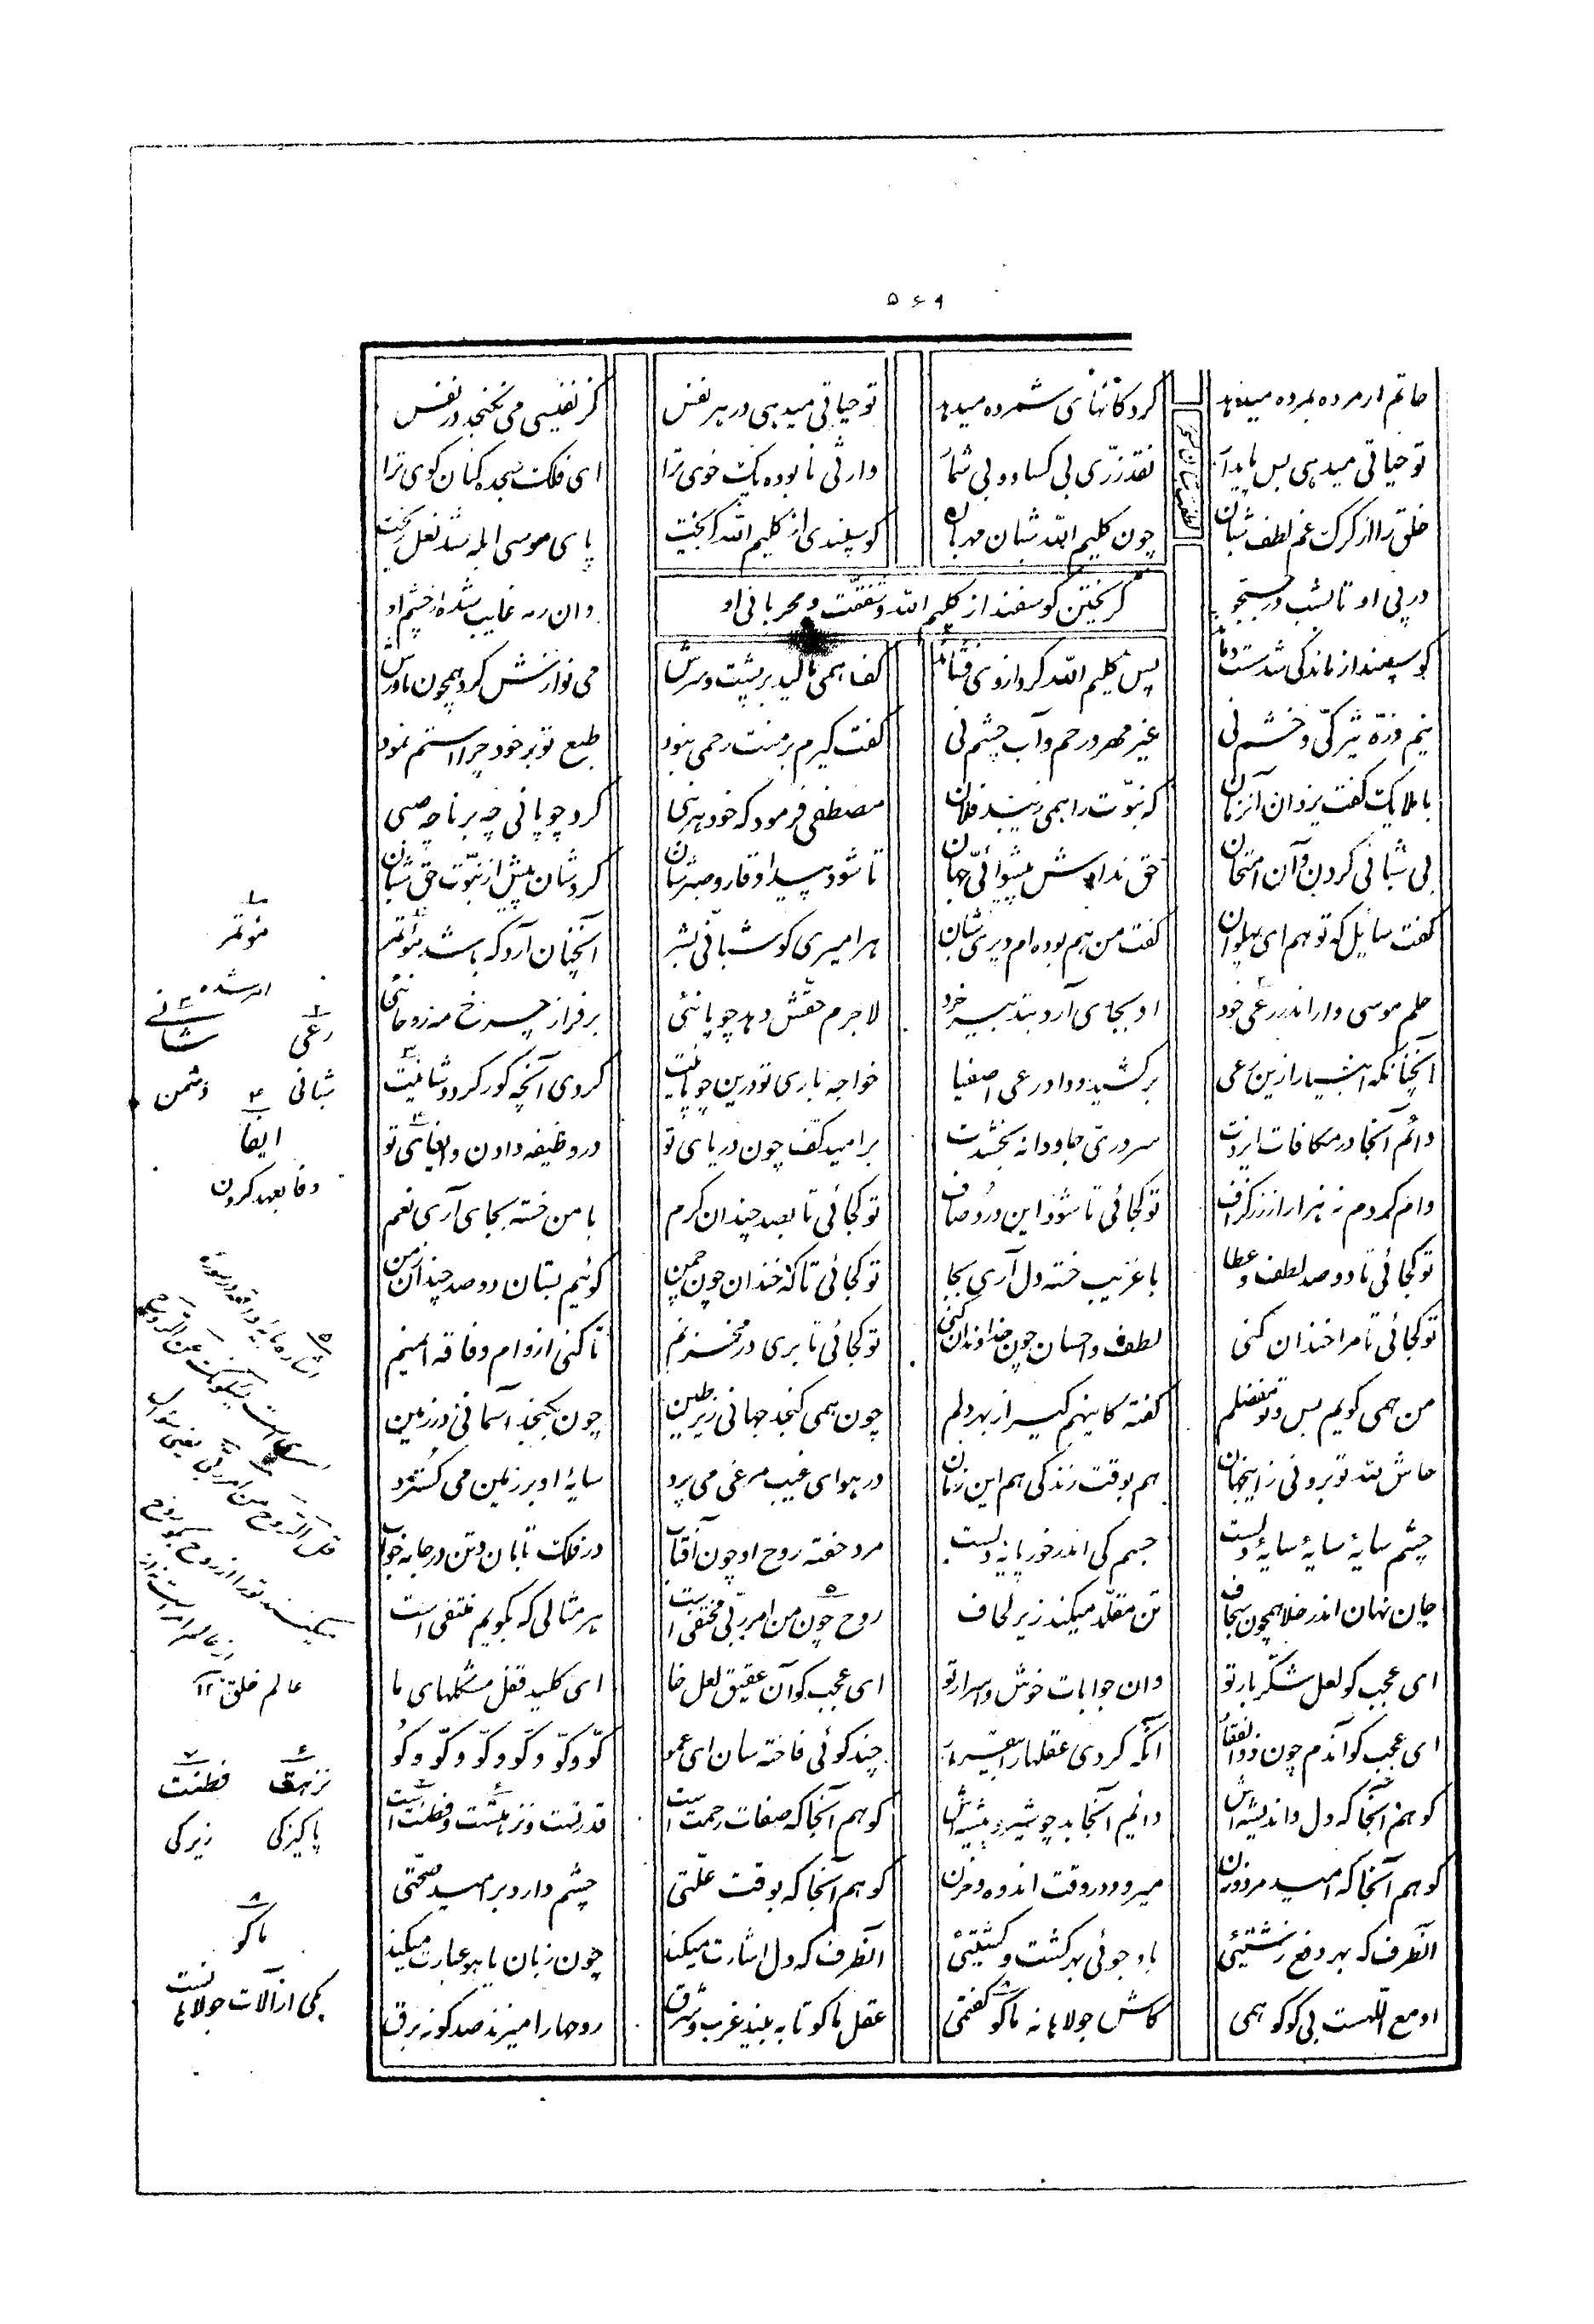 ۵۶۹
حاتم ار مرده بمرده میدهد گردکانهای شمرده میدهد تو حیاتی میدهی در هر نفس کز نفیسی می نگنجد در نفس
تو حیاتی میدهی بس پایدار نقد زرّی بی کساد و بی شمار وارثی نابوده یک خوی ترا ای فلک سجده کنان کوی ترا
خلق را از گرک غم لطف شبان چون کلیم الله شبان مهربان گوسپندی از کلیم الله گریخت پای موسی ابله شد نعل ریخت
گریختن گوسفند از کلیم الله و شفقت و مهربانی او
در پی او تا بشب در جستجو وان رمه غایب شده از چشم او
گوسپند از ماندگی شد سست و ماند پس کلیم الله گرد از وی فشاند کف همی مالید بر پشت و سرش می نوازش کرد همچون مادرش
نیم ذرّه تیرگی و خشم نی غیر مهر و رحم و آب چشم نی گفت گیرم بر منت رحمی نبود طبع تو بر خود چرا استم نمود
با ملایک گفت یزدان آنزمان که نبوّت را همی زیبد فلان مصطفی فرمود که خود هر نبی کرد چوپانی چه برنا چه صبی
بی شبانی کردن و آن امتحان حق ندادش پیشوائی جهان تا شود پیدا وقار و صبرشان کردشان پیش از نبوّت حق شبان
گفت سایل که تو هم ای پهلوان گفت من هم بوده ام دیری شبان هر امیری کو شبانی بشر آنچنان آرد که باشد مؤتمر
حلم موسی وار اندر رعی خود او بجای آرد بتدبیر خرد لاجرم حقش دهد چوپانئی بر فراز چرخ مه روحانئی
آنچنانکه انبیا را زین رعی برکشید و داد رعی اصفیا خواجه باری تو درین چوپانیت کردی آنچه کور گردد شانیت
دانم آنجا در مکافات ایزدت سروری جاودانه بخشدت بر امید کف چون دریای تو در وظیفه دادن و ایفای تو
وام کردم نه هزار از زر گزاف تو کجائی تا شود این درد صاف تو کجائی تا بصد چندان کرم با من خسته بجای آری نعم
تو کجائی تا دو صد لطف و عطا با غریب خسته دل آری بجا تو کجائی تا که خندان چون چمن گوئیم بستان دو صد چندان ز من
تو کجائی تا مرا خندان کنی لطف و احسان چون خداوندان کنی تو کجائی تا بری در مخزنم تا کنی از وام و فاقه ایمنم
من همی گویم بس و تو مفضلم گفته کاینهم گیر از بهر دلم چون همی گنجد جهانی زیر طین چون بگنجد آسمانی در زمین
حاش لله تو برونی ز اینجهان هم بوقت زندگی هم این زمان در هوای غیب مرغی می پرد سایهٔ او بر زمین می گسترد
جسم سایهٔ سایهٔ سایهٔ دلست جسم کی اندر خور پایهٔ دلست مرد خفته روح او چون آفتاب در فلک تابان و تن در جامه خواب
جان نهان اندر خلا همچون سجاف تن مقلّد میکند زیر لحاف روح چون من امر ربّی مختفی است هر مثالی که بگویم منتفی است
ای عجب کو لعل شکّر بار تو وان جوابات خوش و اسرار تو ای عجب کو آن عقیق لعل خا ای کلید قفل مشکلهای ما
ای عجب کو آندم چون ذوالفقار آنکه کردی عقلها را بیقرار چند گوئی فاخته سان ای عمو کو و کو و کو و کو و کو و کو
کو همز آنجا که دل و اندیشه اش دائم آنجا بد چو شیر و بیشه اش کو هم آنجا که صفات رحمت است قدرتست و نزهتست و فطنت است
کو هم آنجا که امید مرد و زن میرود در وقت اندوه و حزن کو هم آنجا که بوقت علّتی چشم دارد بر امید صحّتی
آنطرف که بهر دفع زشتئی باد جوئی بهر کشت و کشتئی آنطرف که دل اشارت میکند چون زبان یا هو عبارت میکند
او مع اللهست بی کو کو همی کاش جولاهانه ماکو گفتمی عقل ما کو تا به بیند غرب و شرق روحها را میزند صد گونه برق
مؤتمر
امر شده
رعی
شبانی
شانی
دشمن
ایفا
وفا بعهد کردن
عالم خلق ۱۲
نزهت
پاکیزگی
فطنت
زیرکی
ماکو
یکی از آلات جولاهانست